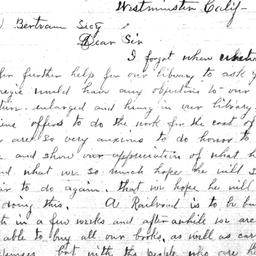 Westminster Calif-
Bertram Secy
Dear Sir
I forgot when
for further help for our library to ask
would have any objection to our
enlarged and hung in our library
offers to do the work for the cost of
are so very anxious to do honor to
and show our appreciation of what h
nd what we so much hope he will s
to do again. that we hope he will
doing this. A Railroad is to be bu
in a few weeks and afterwhile we are
able to buy all our books, as well as car
but with the people who are h